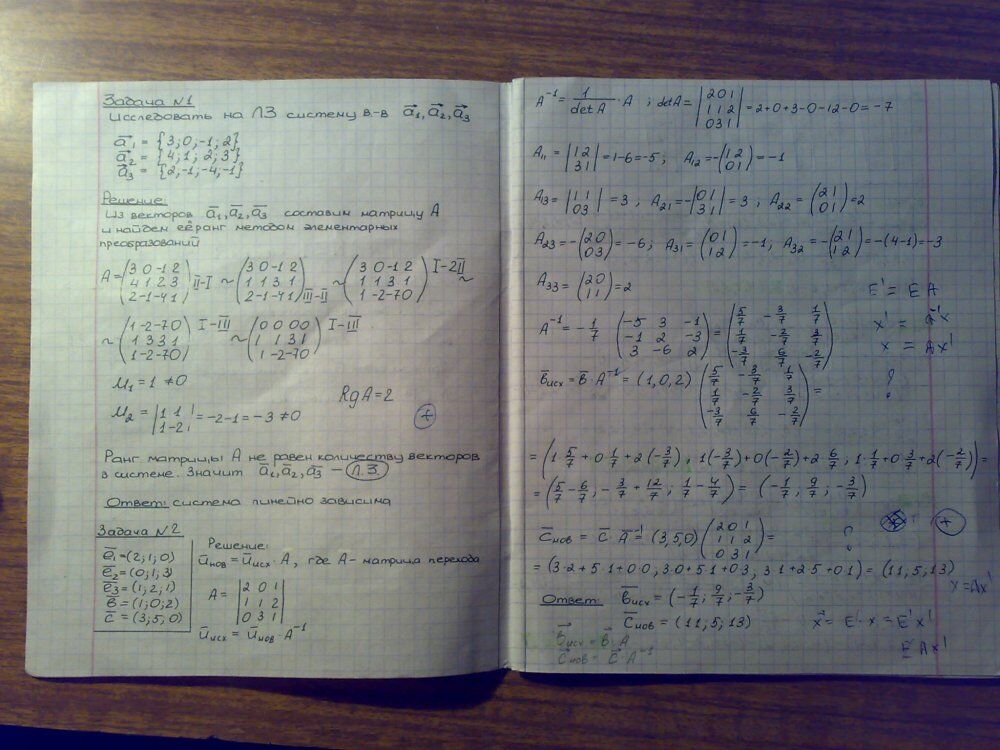 Задача №1
Исследовать на ЛЗ систему в-в a₁, a₂, a₃
a₁ = {3; 0; -1; 2}
a₂ = {4; 1; 2; 3}
a₃ = {2; -1; -4; -1}
Решение:
Из векторов a₁, a₂, a₃ составим матрицу A
и найдем её ранг методом элементарных
преобразований
A = (3 0 -1 2 / 4 1 2 3 / 2 -1 -4 1) II-I ~ (3 0 -1 2 / 1 1 3 1 / 2 -1 -4 1) III-II ~ (3 0 -1 2 / 1 1 3 1 / 1 -2 -7 0) I-2II ~
~ (1 -2 -7 0 / 1 3 3 1 / 1 -2 -7 0) I-III ~ (0 0 0 0 / 1 1 3 1 / 1 -2 -7 0) I-III
M₁ = 1 ≠ 0
RgA = 2
M₂ = |1 1 / 1 -2| = -2-1 = -3 ≠ 0
+
Ранг матрицы A не равен количеству векторов
в системе. Значит a₁, a₂, a₃ – Л.З
Ответ: система линейно зависима
Задача №2
e₁ = (2; 1; 0)
e₂ = (0; 1; 3)
e₃ = (1; 2; 1)
b = (1; 0; 2)
c = (3; 5; 0)
Решение:
uнов = uисх · A, где A – матрица перехода
A = |2 0 1 / 1 1 2 / 0 3 1|
uисх = uнов · A⁻¹
A⁻¹ = 1/detA · A ; detA = |2 0 1 / 1 1 2 / 0 3 1| = 2+0+3-0-12-0 = -7
A₁₁ = |1 2 / 3 1| = 1-6 = -5 ; A₁₂ = -(1 2 / 0 1) = -1
A₁₃ = |1 1 / 0 3| = 3 , A₂₁ = -|0 1 / 3 1| = 3 , A₂₂ = (2 1 / 0 1) = 2
A₂₃ = -(2 0 / 0 3) = -6 ; A₃₁ = (0 1 / 1 2) = -1 ; A₃₂ = -(2 1 / 1 2) = -(4-1) = -3
A₃₃ = (2 0 / 1 1) = 2
E' = E A
A⁻¹ = -1/7 (-5 3 -1 / -1 2 -3 / 3 -6 2) = (5/7 -3/7 1/7 / 1/7 -2/7 3/7 / -3/7 6/7 -2/7)
x = Ax'
bисх = b · A⁻¹ = (1, 0, 2) (5/7 -3/7 1/7 / 1/7 -2/7 3/7 / -3/7 6/7 -2/7) =
?
= (1 5/7 + 0 1/7 + 2(-3/7) , 1(-3/7) + 0(-2/7) + 2 6/7 , 1·1/7 + 0 3/7 + 2(-2/7)) =
= (5/7 - 6/7 , -3/7 + 12/7 ; 1/7 - 4/7) = (-1/7 ; 9/7 ; -3/7)
+
cнов = c · A⁻¹ = (3, 5, 0) (2 0 1 / 1 1 2 / 0 3 1) =
?
= (3·2 + 5·1 + 0·0, 3·0 + 5·1 + 0·3, 3·1 + 2·5 + 0·1) = (11, 5, 13)
x = Ax'
Ответ: bисх = (-1/7 ; 9/7 ; -3/7)
cнов = (11, 5; 13)
x = E · x = E'x'
bисх = b · A
cнов = c · A⁻¹
E A x'